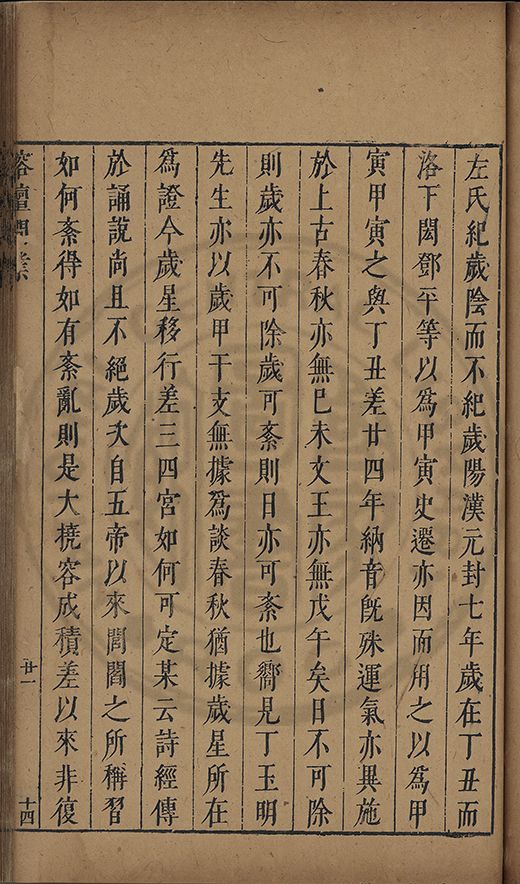 左氏紀歲陰而不紀歲陽漢元封七年歲在丁丑而
洛下閎鄧平等以為甲寅史遷亦因而用之以為甲
寅甲寅之與丁丑差廿四年納音既殊運氣亦異施
於上古春秋亦無己未文王亦無戊午矣日不可除
則歲亦不可除歲可紊則日亦可紊也嚮見丁玉明
先生亦以歲甲干支無據為談春秋猶據歲星所在
為證今歲星移行差三四宮如何可定某云詩經傳
於誦說尚且不絕歲次自五帝以來閭閻之所稱習
如何紊得如有紊亂則是大撓容成積差以來非復
榕壇問業
廿一
十四